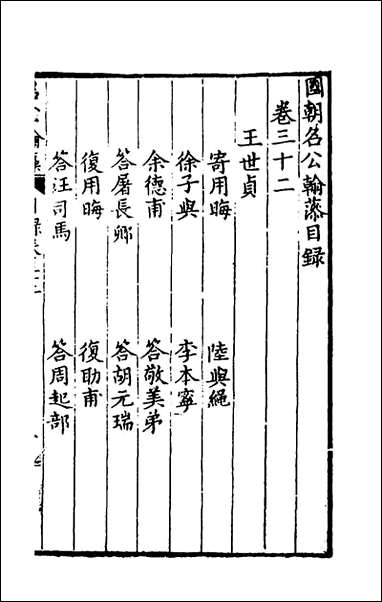 國朝名公翰藻目録
卷三十二
王世貞
寄用晦 陸與繩
徐子與 李本寧
余德甫 答敬美弟
答屠長卿 答胡元瑞
復用晦 復助甫
答汪司馬 答周起部